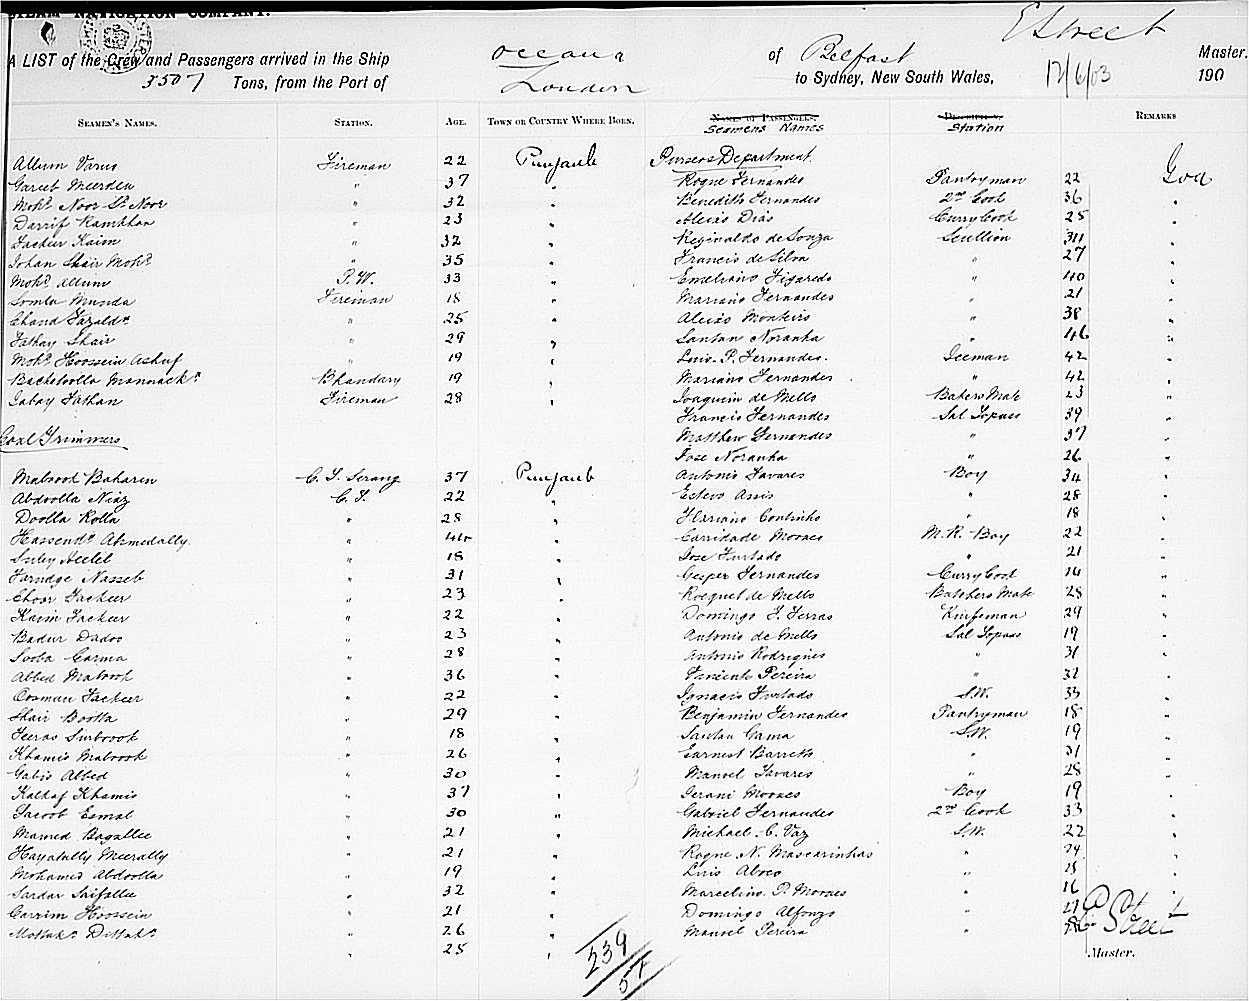 STEAM NAVIGATION COMPANY.
E Street
A LIST of the Crew and Passengers arrived in the Ship Oceana of Belfast Master.
3507 Tons, from the Port of London to Sydney, New South Wales, 17/6/03 190
SEAMEN'S NAMES. STATION. AGE. TOWN OR COUNTRY WHERE BORN. NAMES OF PASSENGERS. DESCRIPTION. REMARKS
Seamens Names Station
Allum Varis Fireman 22 Punjaub
Gareeb Meerden " 37 "
Mohd. Noor Sr. Noor " 32 "
Darrif Ramkhan " 23 "
Fackeer Kaim " 32 "
Johan Shair Mohd. " 35 "
Mohd. Allum P.W. 33 "
Somla Munda Fireman 18 "
Chand Fazaldn " 25 "
Fathay Shair " 29 "
Mohd. Hoossein Ashuf " 19 "
Bachoolla Mannack Bhandary 19 "
Fireman 28 "
Coal Trimmers
Mabrook Baharen C. T. Serang 37 Punjaub
Abdoolla Niaz C. T. 22 "
Doolla Rolla " 28 "
Ahmedally " "
" 18 "
Farudge Nasseb " 31 "
Fackeer " 23 "
Kaim Fackeer " 22 "
Badur Dadoo " 23 "
Sooba Carma " 28 "
Abbed Mabrook " 36 "
Oosman Fackeer " 22 "
Shair Bootta " 29 "
Feeros Surbrook " 18 "
Khamis Mabrook " 26 "
Gabis Abbed " 30 "
Kalfaf Khamis " 37 "
Jacoob Esmal " 30 "
Mamed Bagallee " 21 "
Hayatully Meerally " 21 "
Mohamed Abdoolla " 19 "
Sardar Saifallee " 32 "
Carrim Hoossein " 21 "
" 26 "
" 25 "
239
57
Pursers Department.
Roque Fernandes Pantryman 22 Goa
Benedito Fernandes 2nd Cook 36 "
Aleixo Dias Curry Cook 25 "
Reginaldo de Souza Scullion "
Francis de Silva " 27 "
Emeliano Figaredo " 40 "
Mariano Fernandes " 21 "
Aleixo Monteiro " 38 "
Santan Noranha " 46 "
Luis. P. Fernandes. Iceman 42 "
Mariano Fernandes " 42 "
Joaquim de Mello Bakers Mate 23 "
Francis Fernandes Sal Topass 39 "
Matthew Fernandes " 37 "
Jose Noranha " 26 "
Antonio Tavares Boy 34 "
Estevo Assis " 28 "
Floriano Coutinho " 18 "
Carridade Moraes M. R. Boy 22 "
Jose Furtado " 21 "
Gesper Fernandes Curry Cook "
Roequel de Mello Butchers Mate 28 "
Domingo F. Ferras Knifeman 29 "
Antonio de Mello Sal Topass 19 "
Antonio Rodrigues " 31 "
Vincente Pereira " 32 "
Ignacio Furtado S.W. 33 "
Benjamin Fernandes Pantryman 18 "
Santan Gama S.W. 19 "
Earnest Barretto " 21 "
Manoel Tavares " 28 "
Moraes Boy 19 "
Gabriel Fernandes 2nd Cook 33 "
Michael. C. Vaz S.W. 22 "
Roque N. Mascarinhas " 24 "
Luis " "
Marcelino. P. Moraes " 16 "
Domingo Alfonzo " "
Manoel Pereira "
E Street
Master.